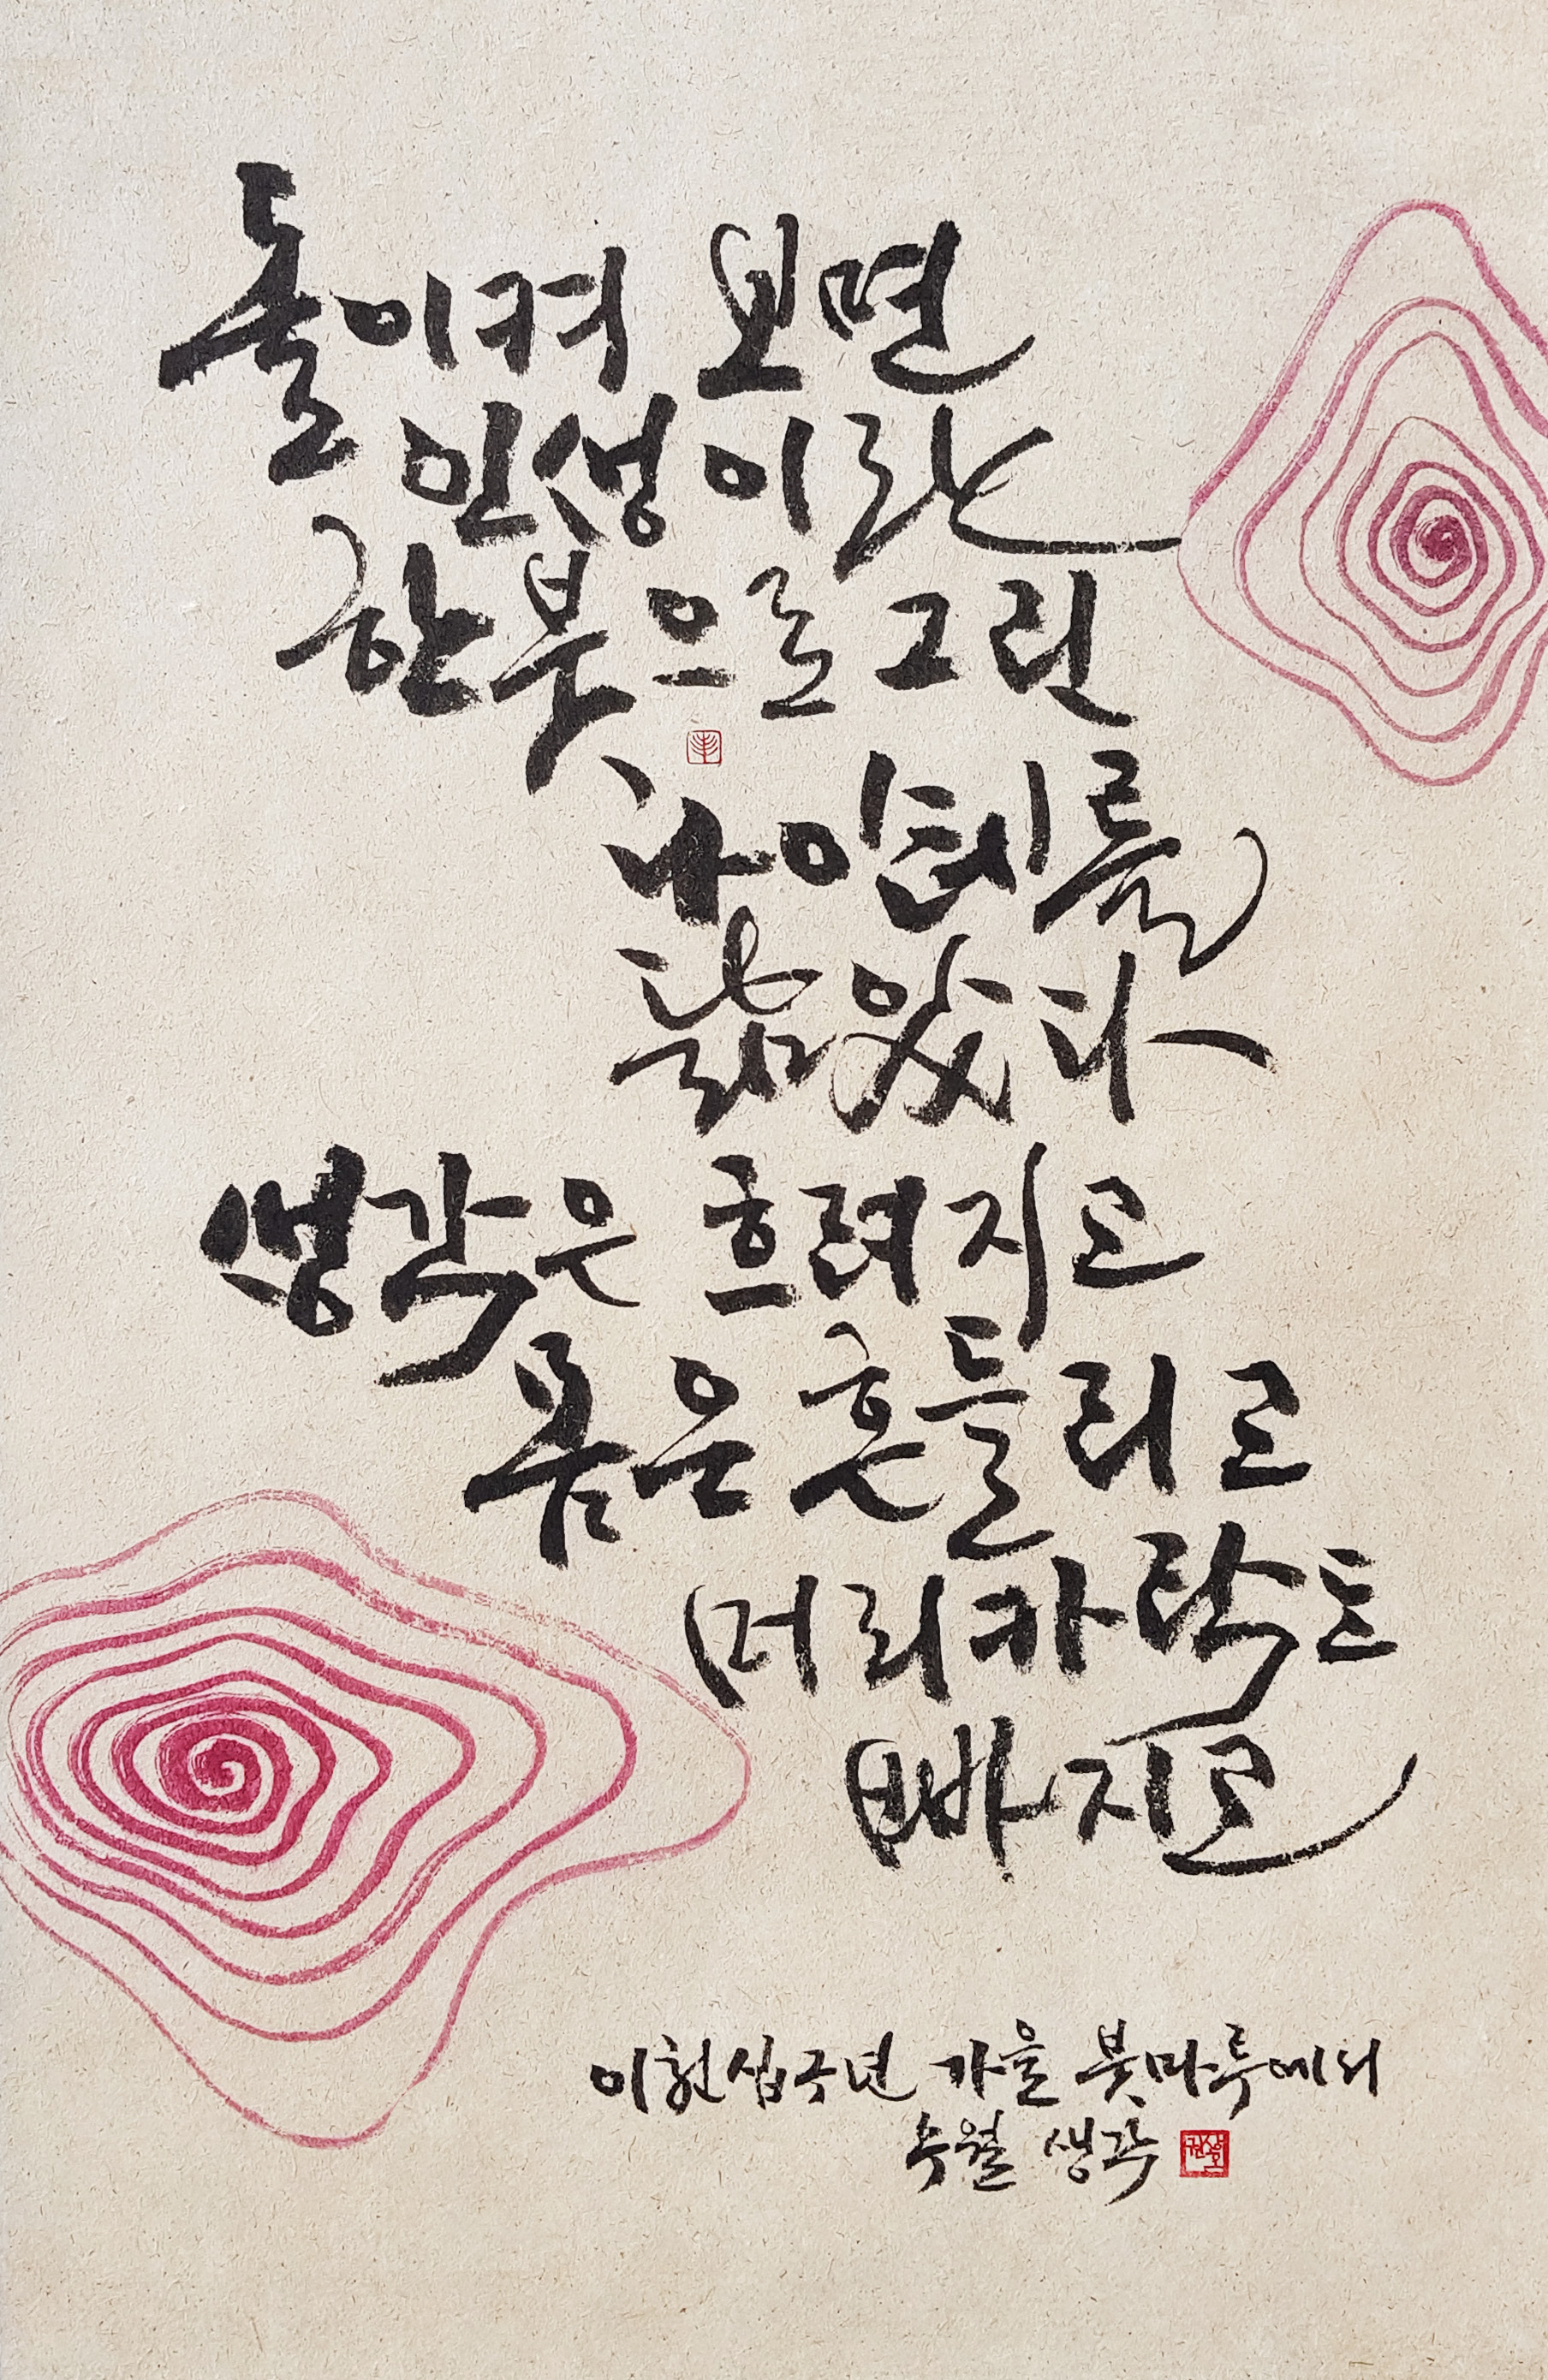 돌이켜 보면
인생이란
한 붓으로 그린
나이테를
닮았다
생각은 흐려지고
몸은 흔들리고
머리카락도
빠지고
이천십구년 가을 붓마루에서
수월 생각